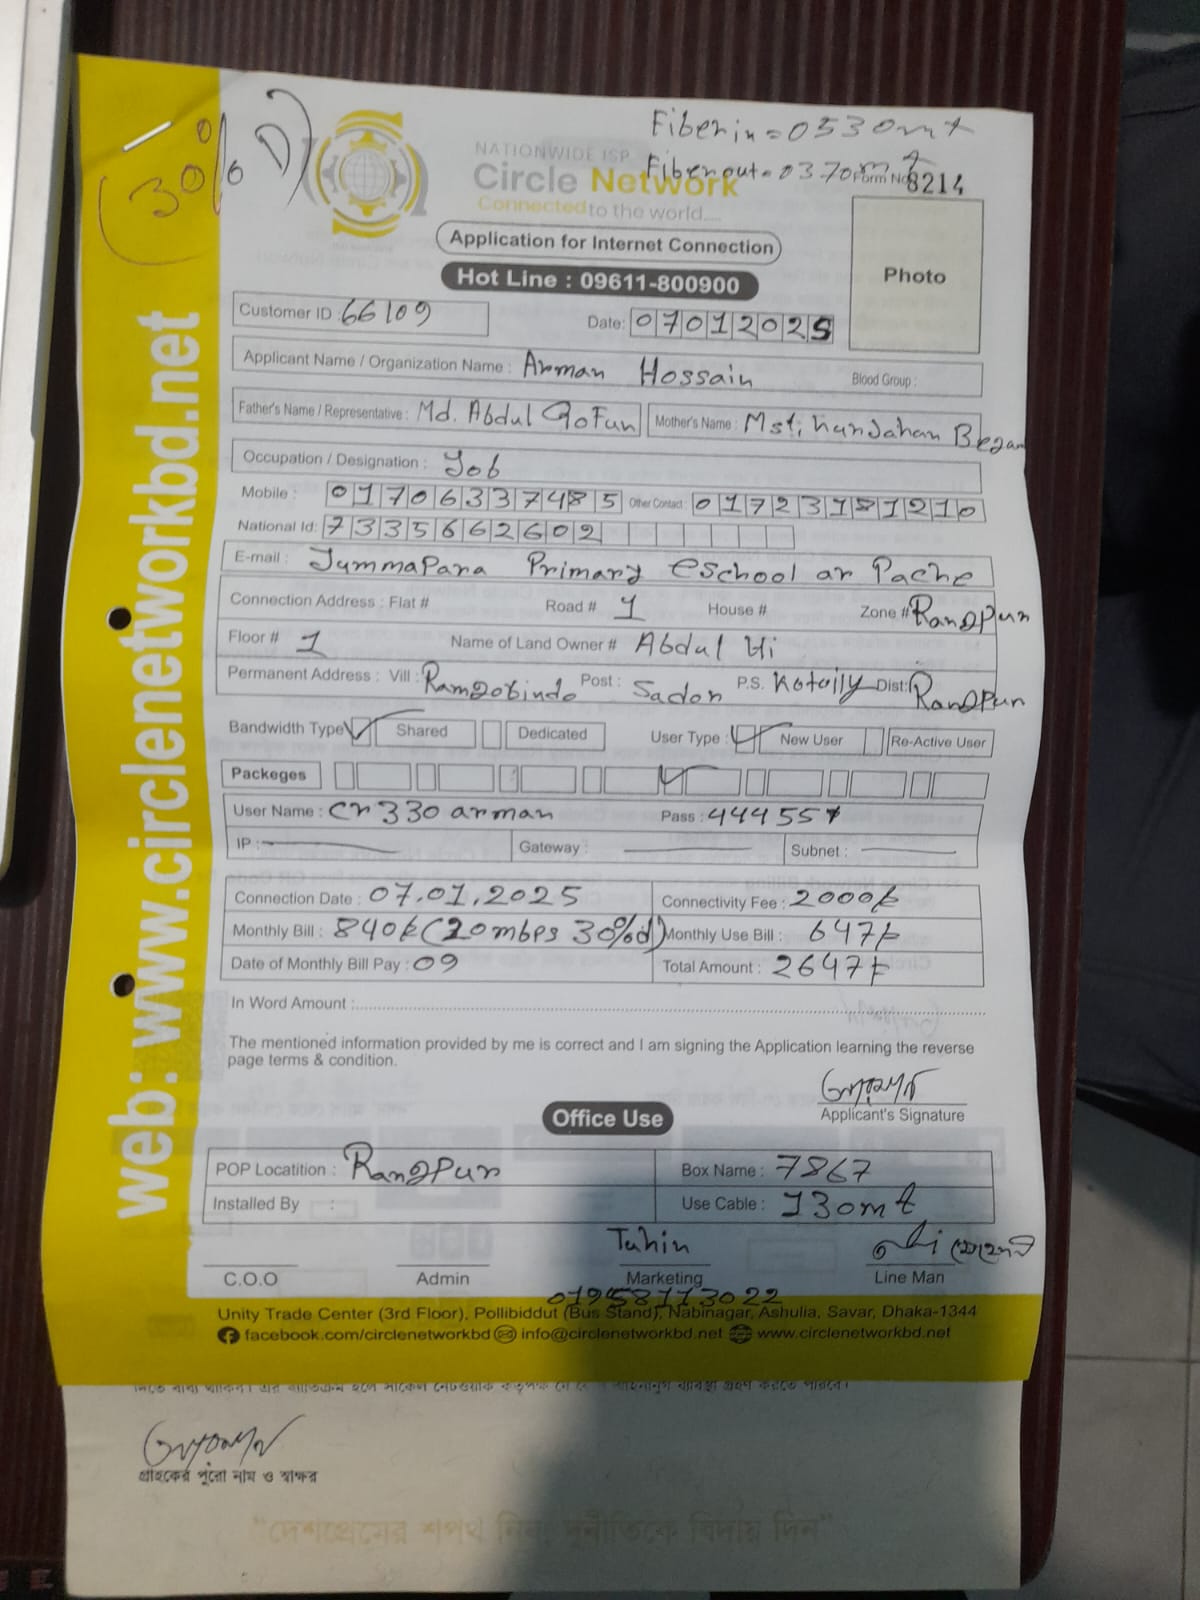 (30% D)
Fiber in = 0530mt
NATIONWIDE ISP
Fiber out = 0370mt
Form No. 8214
Circle Network
Connected to the world....
Application for Internet Connection
Photo
Hot Line : 09611-800900
Customer ID : 66109
Date: 07012025
Applicant Name / Organization Name : Arman Hossain Blood Group :
Father's Name / Representative : Md. Abdul Gofur Mother's Name : Mst. nurjahan Begam
Occupation / Designation : Job
Mobile : 01706337485 Other Contact : 01723181210
National Id: 7335662602
E-mail : Jummapara Primary eschool ar Pache
Connection Address : Flat # Road # 1 House # Zone # Rangpur
Floor # 1 Name of Land Owner # Abdul Hi
Permanent Address : Vill : Ramgobindo Post : Sador P.S. Kotaily Dist: Rangpur
Bandwidth Type Shared Dedicated User Type : New User Re-Active User
Packeges
User Name : cr330arman Pass : 444555
IP : Gateway : Subnet :
Connection Date : 07.01.2025 Connectivity Fee : 2000/-
Monthly Bill : 840/- (20mbps 30%d) Monthly Use Bill : 647/-
Date of Monthly Bill Pay : 09 Total Amount : 2647/-
In Word Amount :
The mentioned information provided by me is correct and I am signing the Application learning the reverse
page terms & condition.
Applicant's Signature
Office Use
POP Locatition : Rangpur Box Name : 7867
Installed By : Use Cable : 130mt
Tuhin
C.O.O Admin Marketing Line Man
01958113022
Unity Trade Center (3rd Floor), Pollibiddut (Bus Stand), Nabinagar, Ashulia, Savar, Dhaka-1344
facebook.com/circlenetworkbd info@circlenetworkbd.net www.circlenetworkbd.net
web: www.circlenetworkbd.net
গ্রাহকের পুরো নাম ও স্বাক্ষর
"দেশপ্রেমের শপথ নিন, দুর্নীতিকে বিদায় দিন"